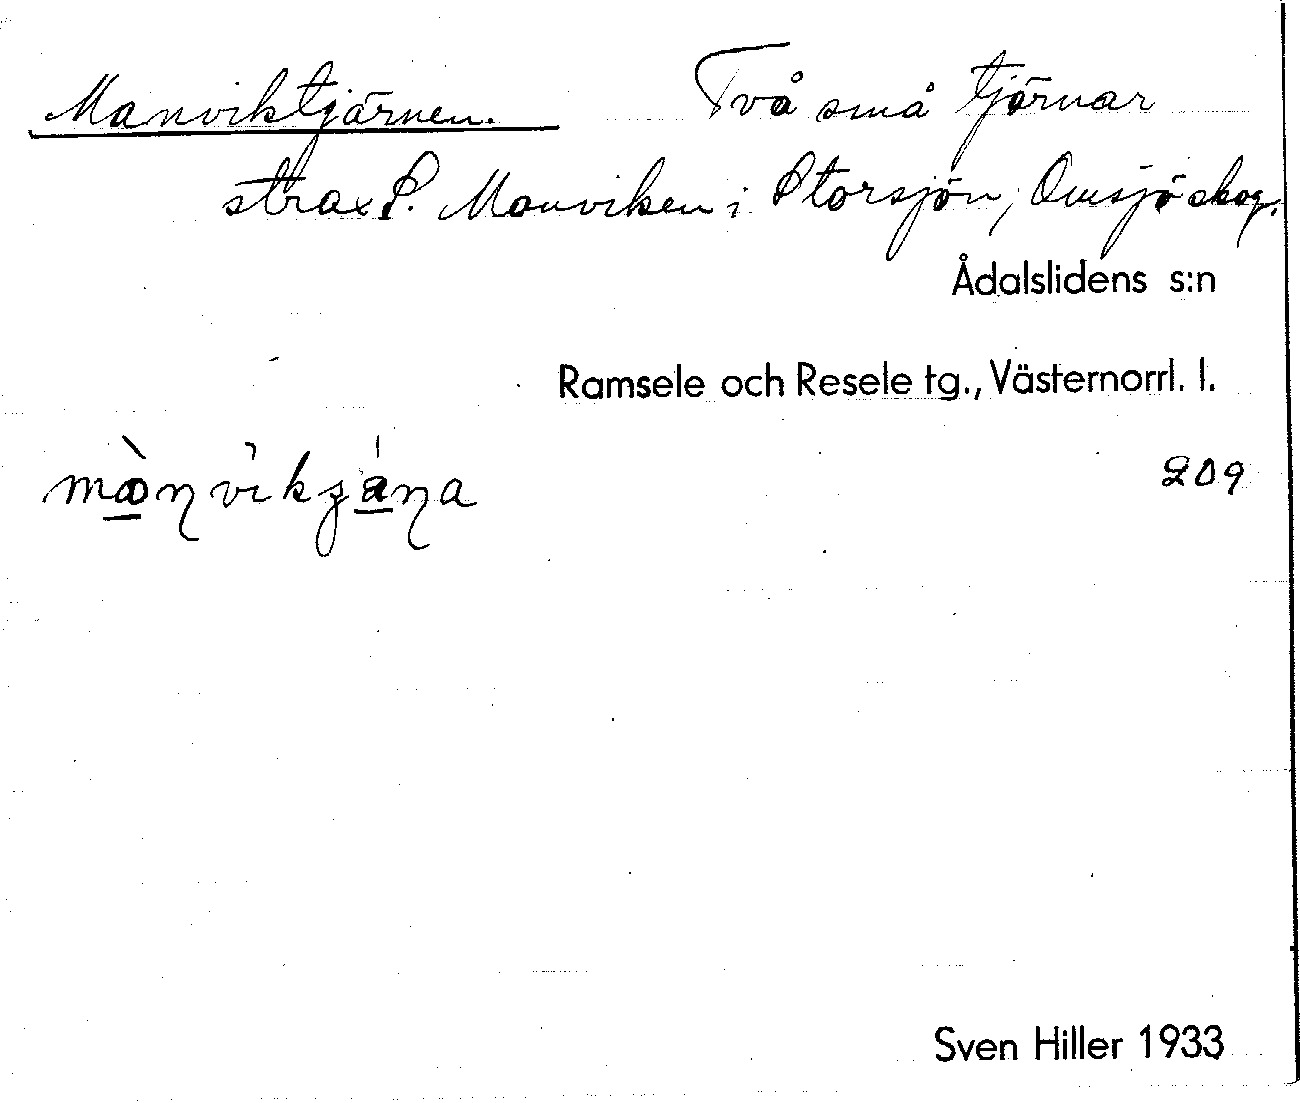 Manviktjärnen. Två små tjärnar
strax S. Manviken i Storsjön, Omsjö skog.
Ådalslidens s:n
Ramsele och Resele tg., Västernorrl. l.
209
Sven Hiller 1933